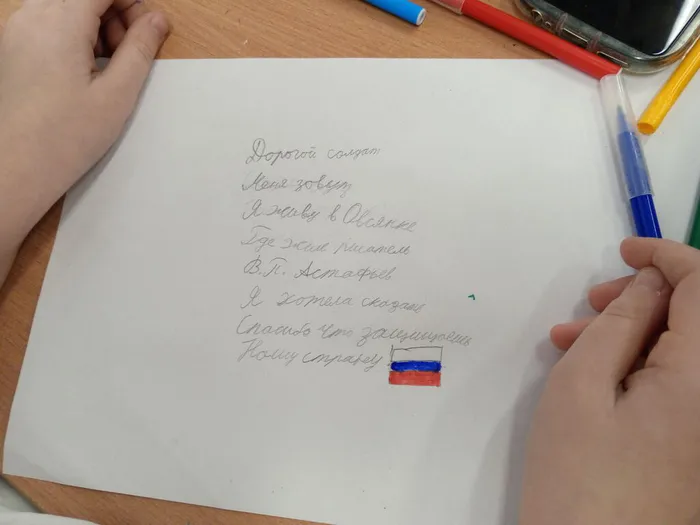 Дорогой солдат
Меня зовут
Я живу в Овсянке
Где жил писатель
В.П. Астафьев
Я хотела сказать
Спасибо что защищаешь
Нашу страну